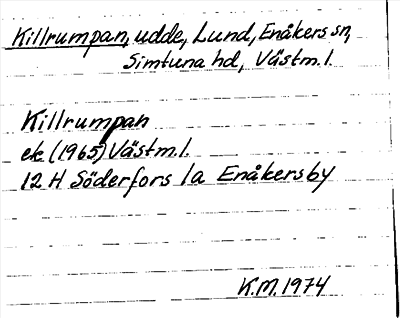 Killrumpan, udde, Lund, Enåkers sn,
Simtuna hd, Västm.l.
Killrumpan
ek (1965) Västm.l.
12 H Söderfors 1a Enåkersby
K.M. 1974